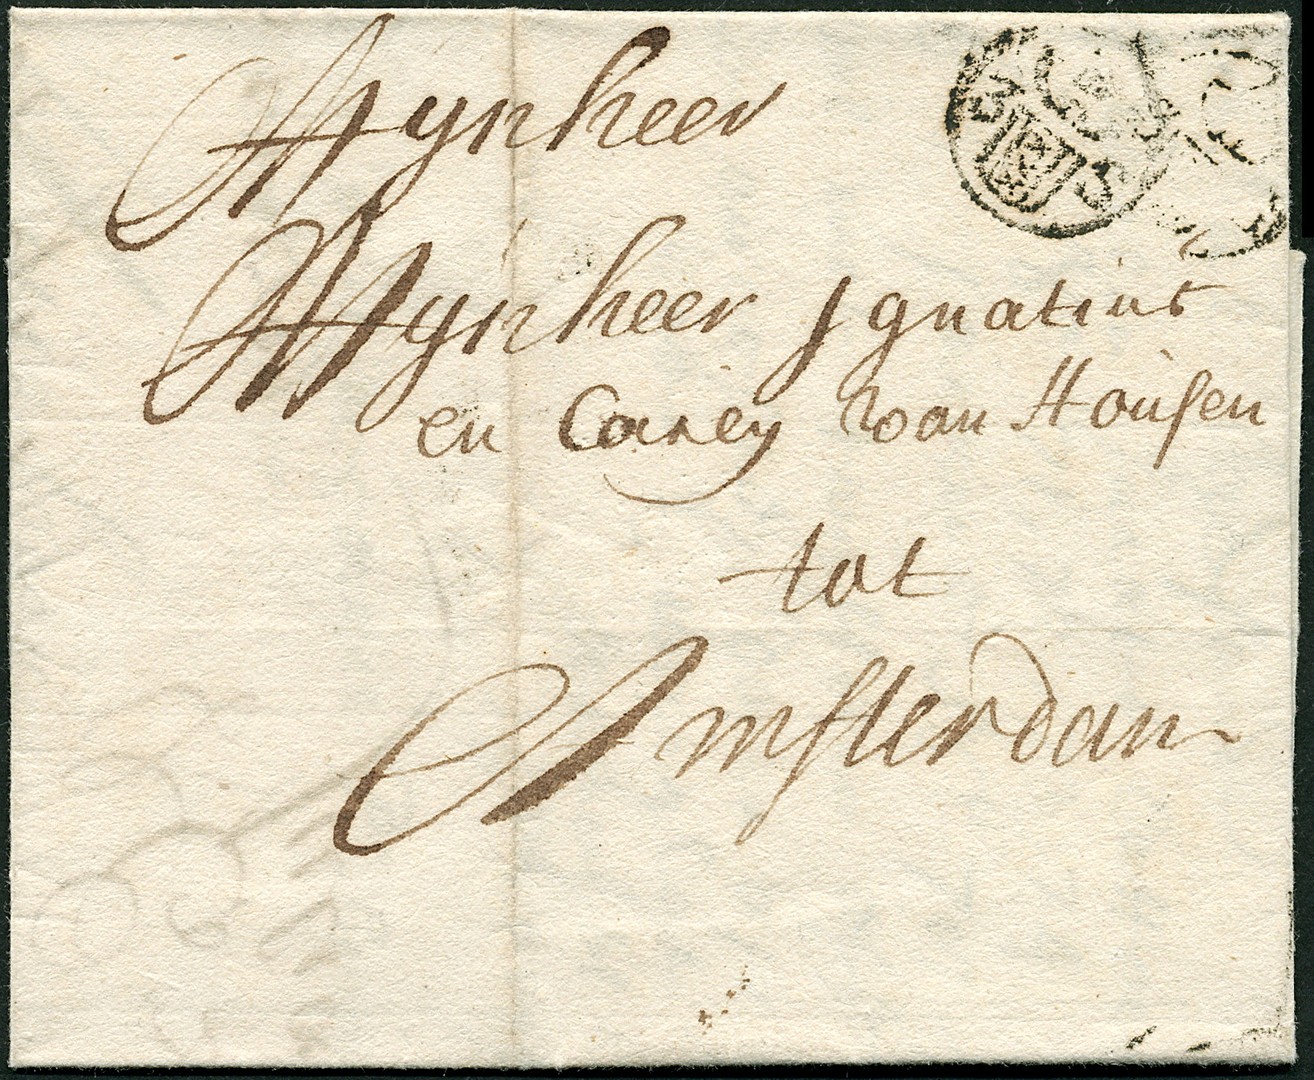 Mynheer
Mynheer Ignatius
en Carey van Housen
tot
Amsterdam